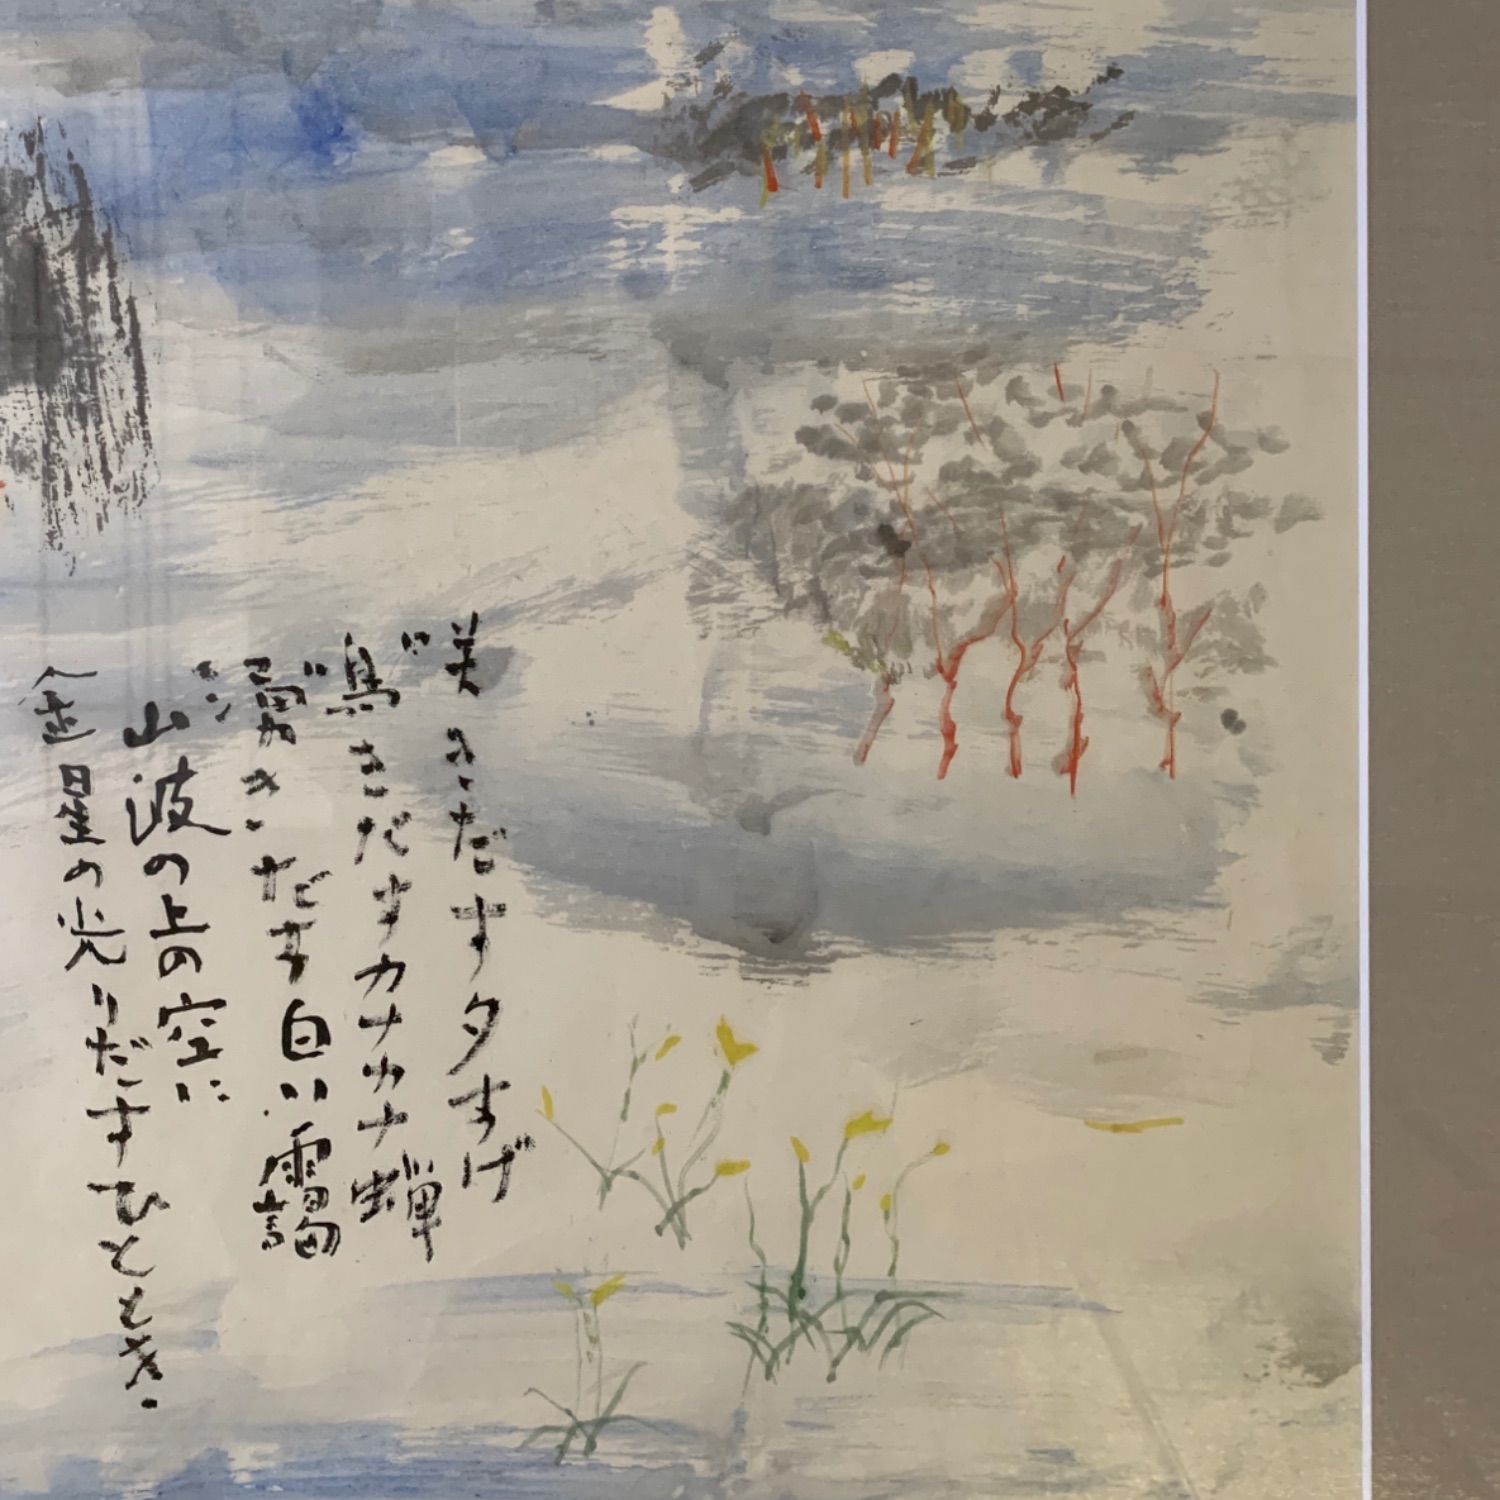 咲きだす夕すげ
鳴きだすカナカナ蝉
湧きだす白い靄
山波の上の空に
金星の光りだすひととき.